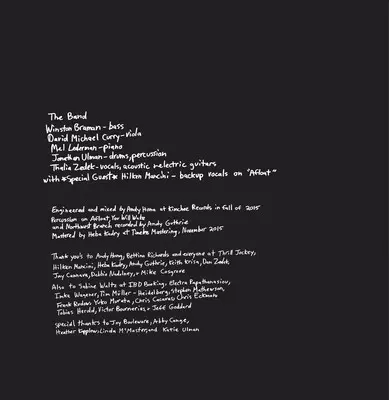 The Band
Winston Braman - bass
David Michael Curry - viola
Mel Lederman - piano
Jonathan Ulman - drums, percussion
Thalia Zedek - vocals, acoustic + electric guitars
with *Special Guest* Hilken Mancini - backup vocals on "Afloat"
Engineered and mixed by Andy Hong at Kimchee Records in fall of 2015
Percussion on Afloat, You Will Wake
and Northwest Branch recorded by Andy Guthrie
Mastered by Heba Kadry at Timeless Mastering, November 2015
Thank you's to Andy Hong, Bettina Richards and everyone at Thrill Jockey,
Hilken Mancini, Heba Kadry, Andy Guthrie, Keith Krisa, Dan Zedek,
Jay Cannava, Debbie Nadolney, + Mike Cosgrove
Also to Sabine Waltz at IBD Booking, Electra Papathanasiou,
Imke Wagener, Tim Müller - Heidelberg, Stephen Mathewson,
Frank Yoko Murata, Chris Cacavas, Chris Eckman
Tobias Herold, Victor + Jeff Goddard
special thanks to Joy Abby
Heather Kapplow, Linda McMaster, and Katie Ulman